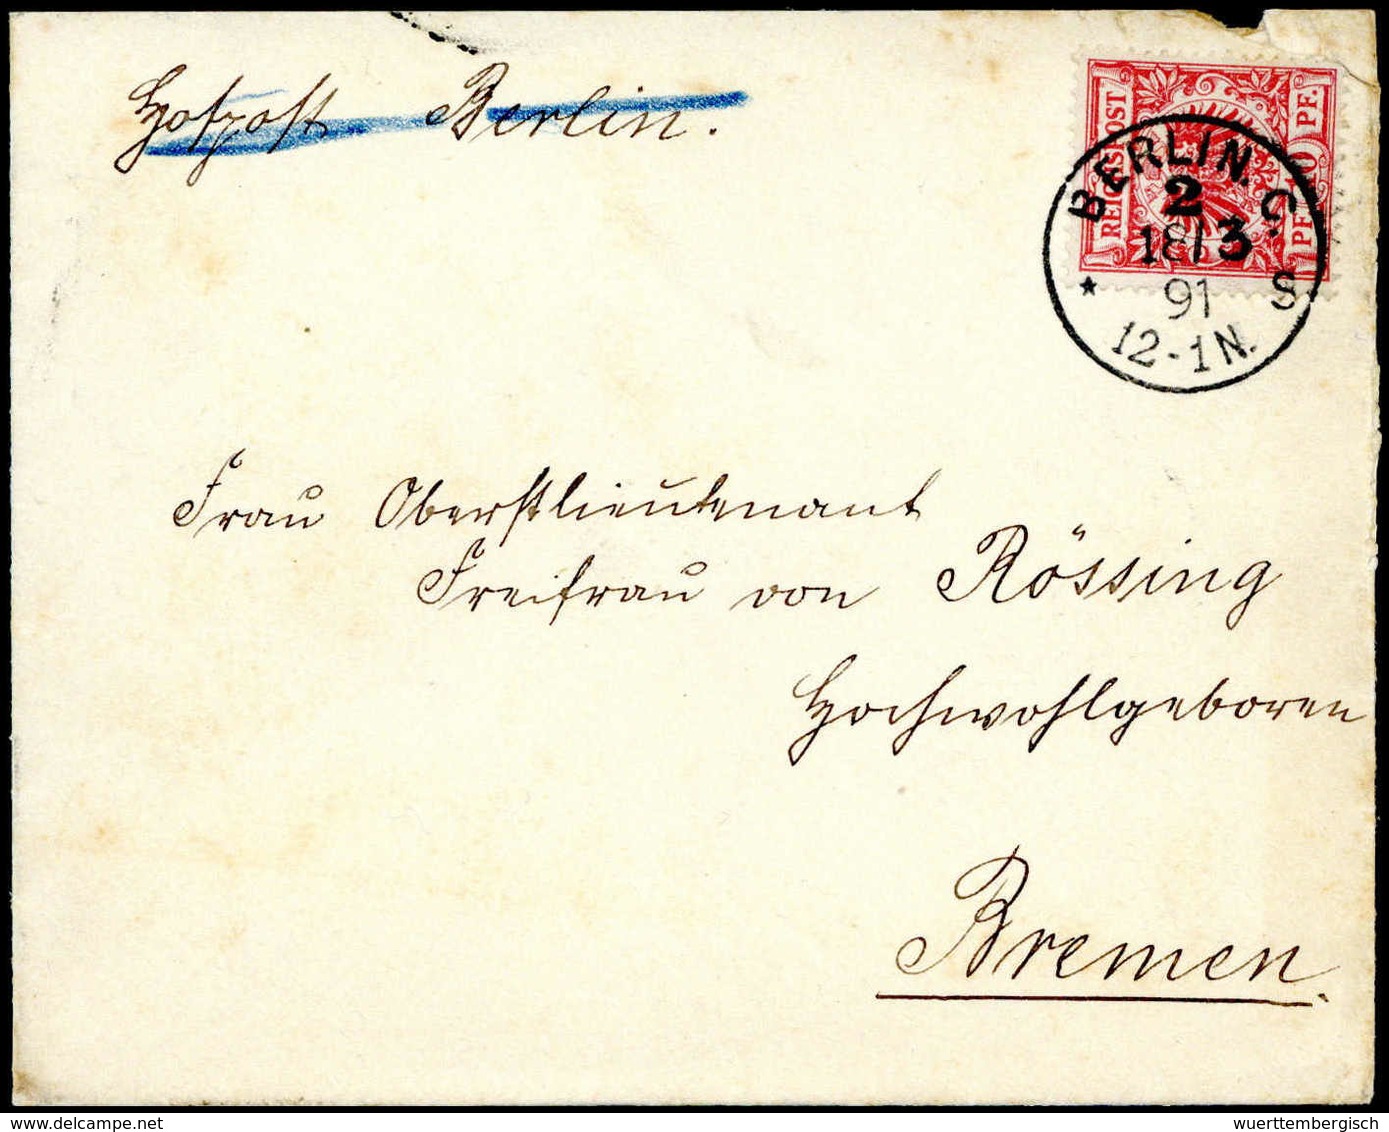 Hofpost Berlin.
REICHSPOST
10 PF.
PF. 10
BERLIN. C.
2
18/3
91
* S
12-1N.
Frau Oberstlieutenant
Freifrau von Rössing
Hochwohlgeboren
Bremen.
wuerttembergisch